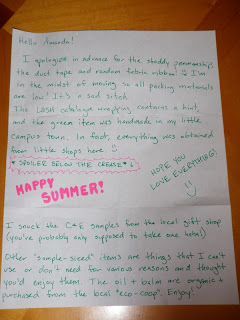 Hello Amanda!
I apologize in advance for the shoddy penmanship,
the duct tape and random fabric ribbon! :) I'm
in the midst of moving so all packing materials
are low! It's a sad sitch.
The LUSH catalogue wrapping contains a hint,
and the green item was handmade in my little
campus town. In fact, everything was obtained
from little shops here. :)
* SPOILER BELOW THE CREASE *
HAPPY
SUMMER!
HOPE YOU
LOVE EVERYTHING!
:)
I snuck the samples from the local gift shop
(you're probably only supposed to take one haha)
Other "sample-sized" items are things that I can't
use or don't need for various reasons and thought
you'd enjoy them. The oil + balm are organic +
purchased from the local "eco-coop". Enjoy!